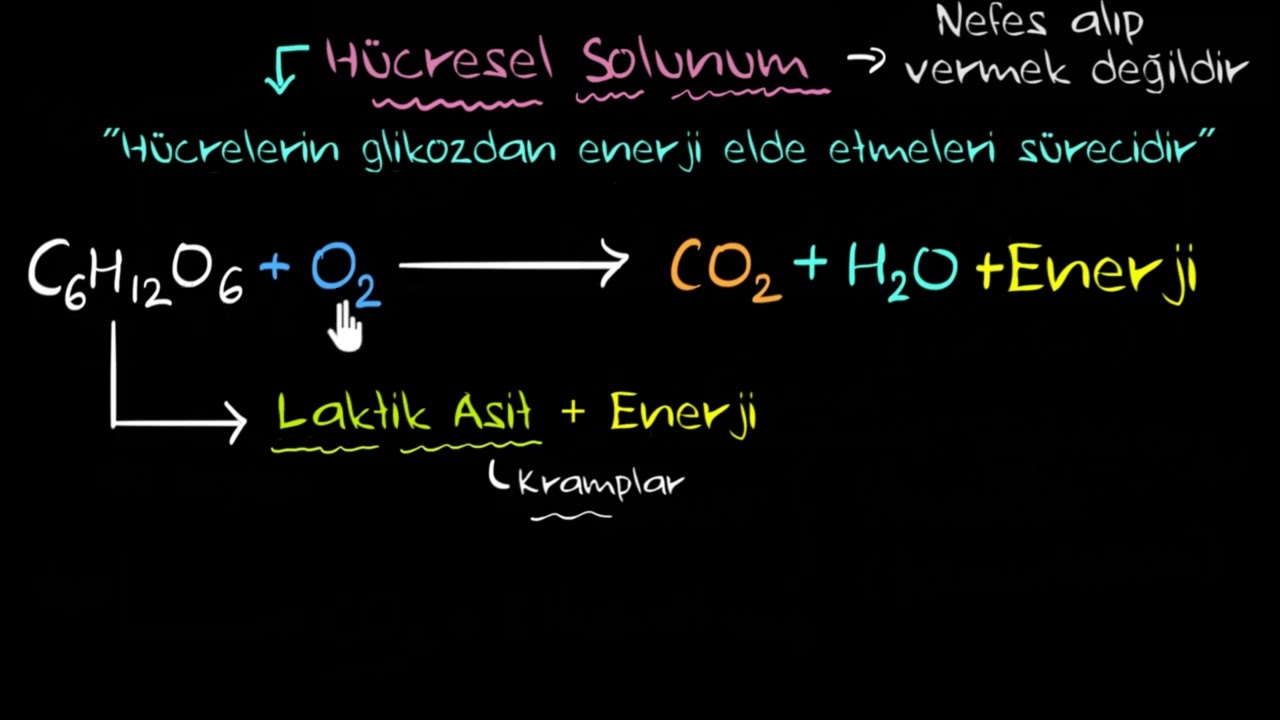 Nefes alıp
Hücresel Solunum → vermek değildir
"Hücrelerin glikozdan enerji elde etmeleri sürecidir"
C₆H₁₂O₆ + O₂ → CO₂ + H₂O + Enerji
Laktik Asit + Enerji
Kramplar